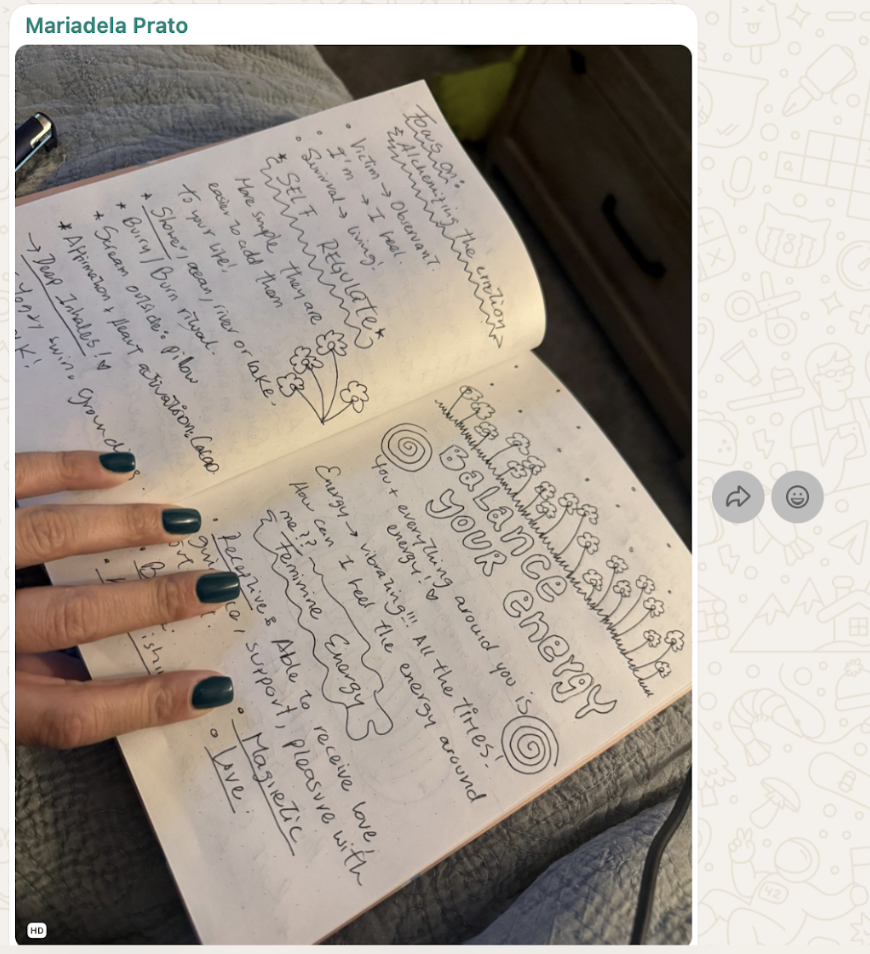 Mariadela Prato
Focus on:
* Alchemizing the emotion
• Victim → Observant.
I'm → I feel.
• Survival → living!
* SELF REGULATE *
More simple they are
easier to add them
to your life!
* Shower, ocean, river or lake.
* Burry/Burn ritual.
* Scream outside: pillow
* Affirmation + Heart activation: Cacao
→ Deep Inhales!
swing
BaLance
YOUR energy
You + everything around you is
energy!
Energy → vibrating!!! All the times!
How can I feel the energy around
me??
Feminine Energy
• Receptive: Able to receive love,
support, pleasure with
• Magnetic
• Love.
HD